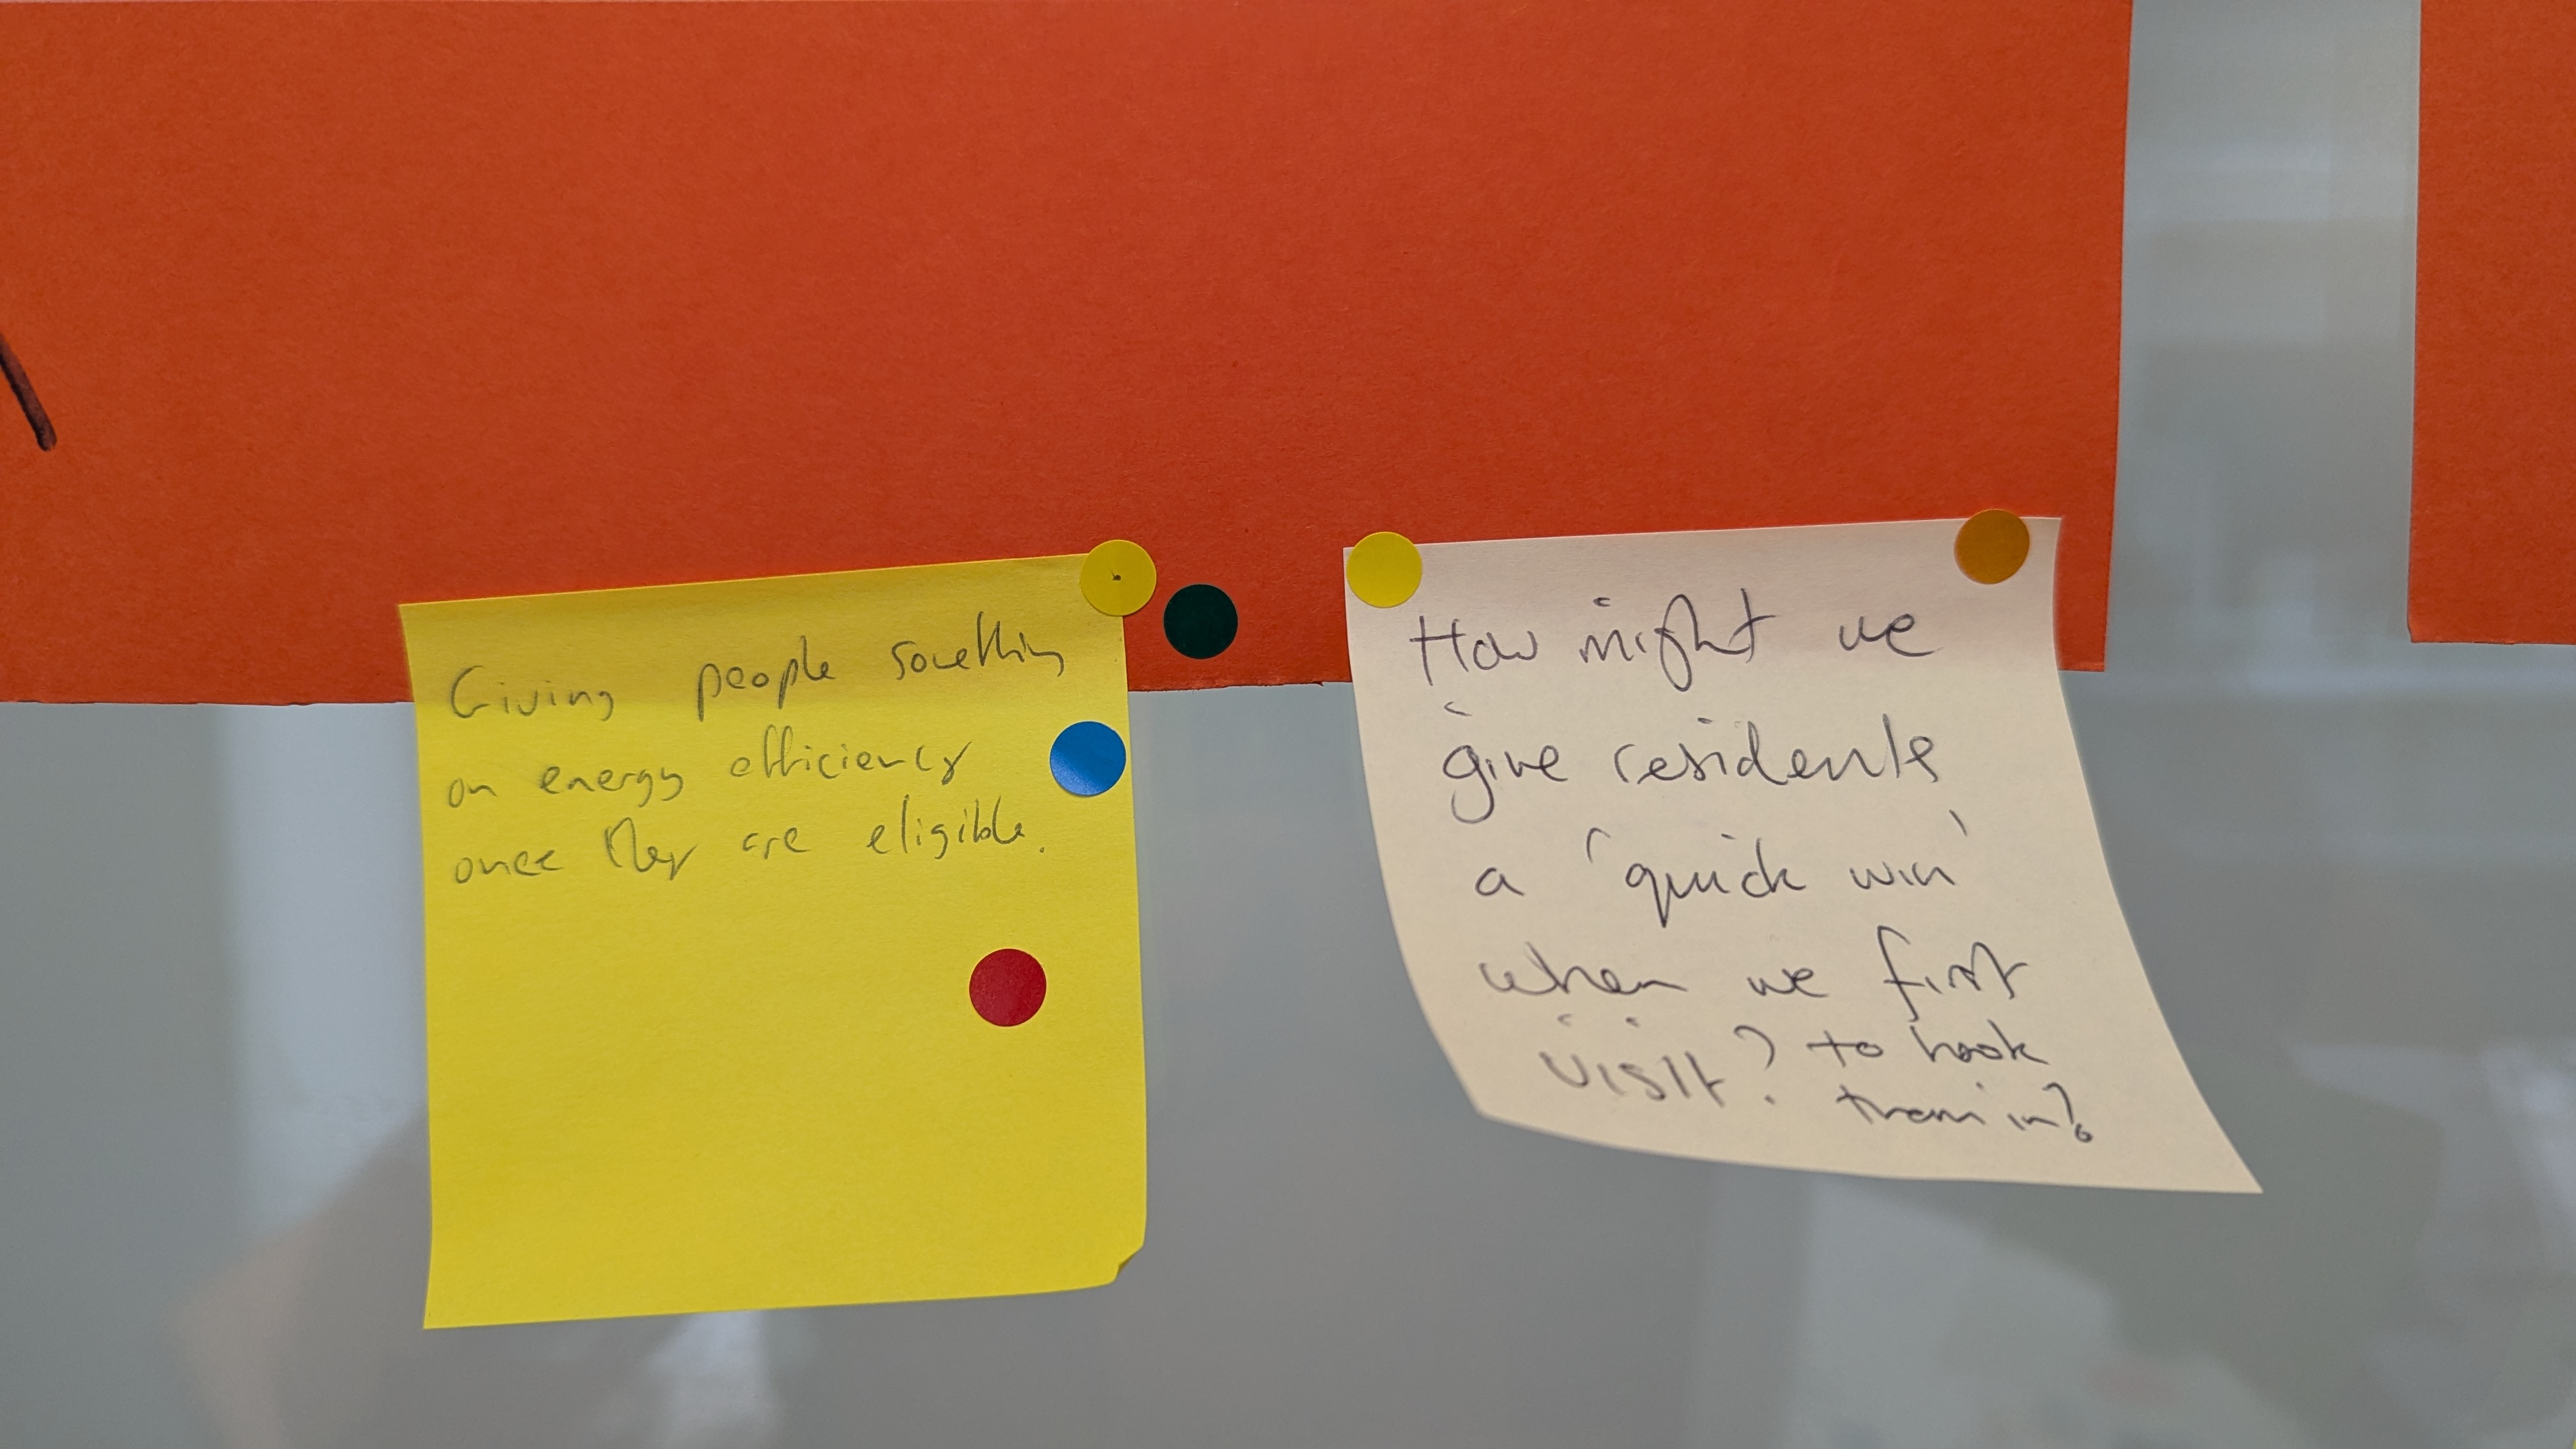 Giving people something
on energy efficiency
once they are eligible.
How might we
give residents
a 'quick win'
when we first
visit? to hook
them in?